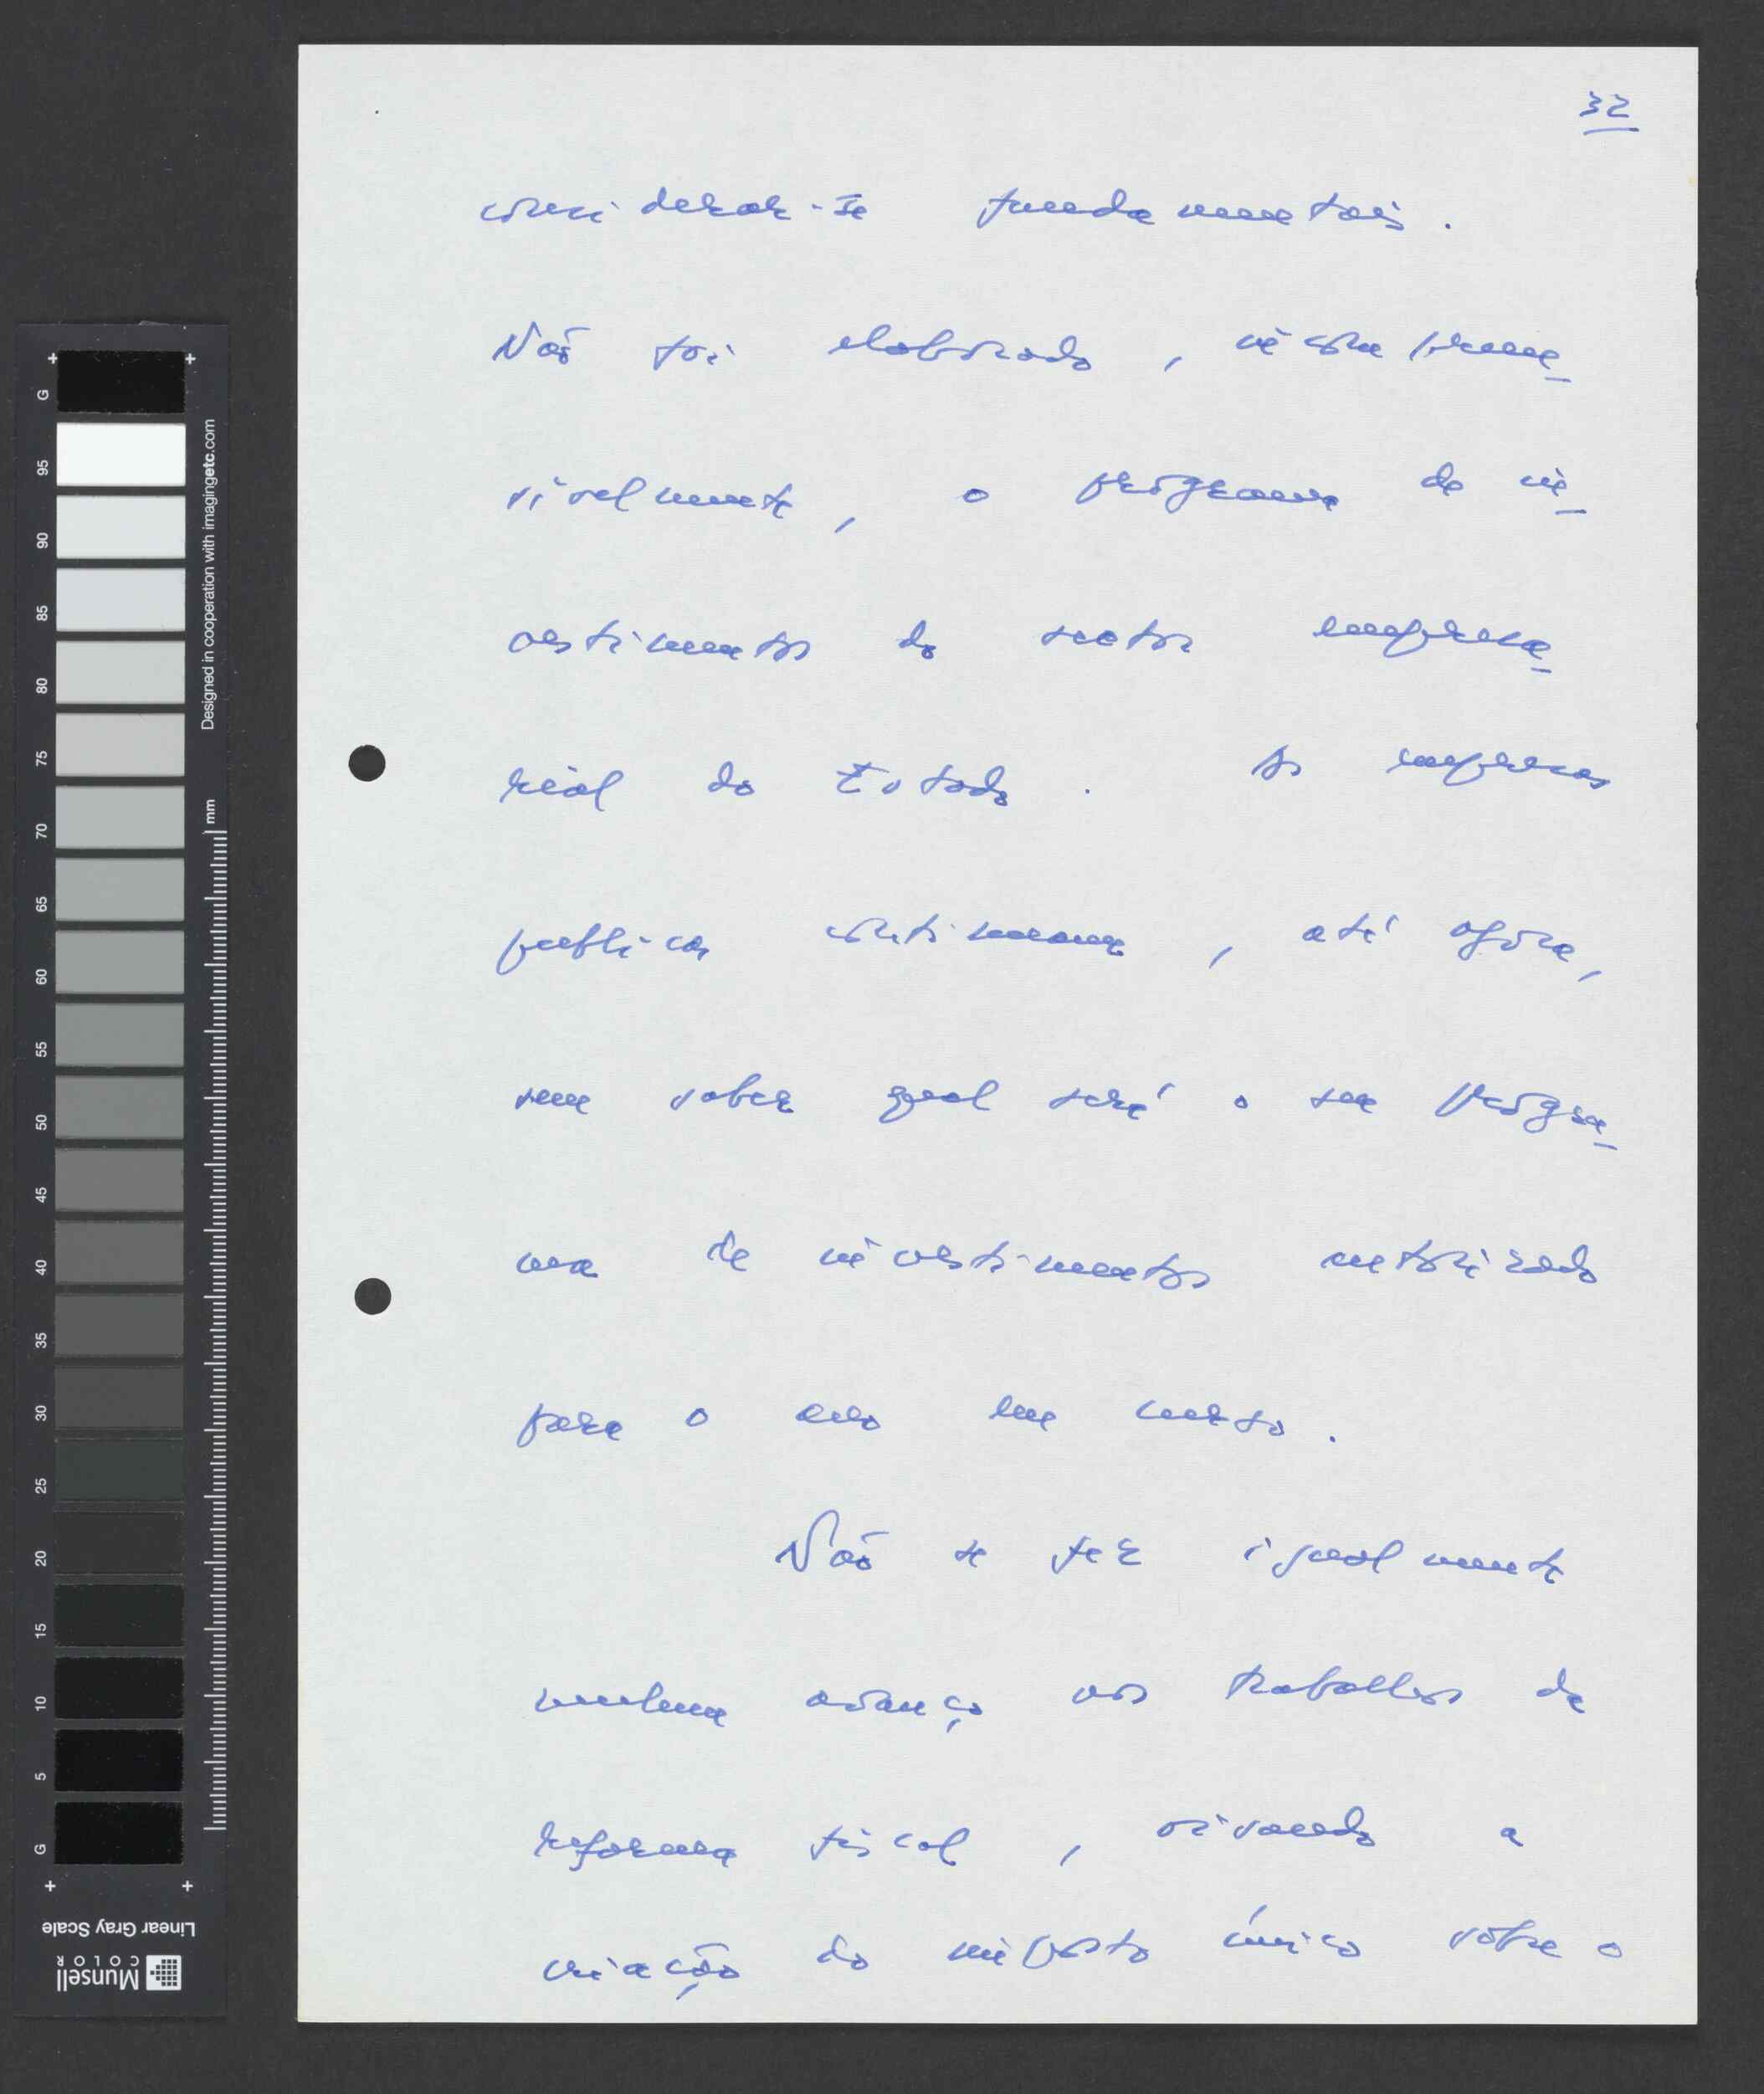 32
considerar-se fundamentais.
Não foi elaborado, incompreen
sivelmente, o programa de in
vestimentos do sector empresa
rial do Estado. As empresas
publicas continuam, até agora,
sem saber qual será o seu Progra
ma de investimentos autorizado
para o ano em curso.
Não se fez igualmente
nenhum avanço nos trabalhos da
reforma fiscal, visando a
criação do imposto único sobre o
G 95 90 85 80 75 70 65 60 55 50 45 40 35 30 25 20 15 10 5 G
Designed in cooperation with imagingetc.com
mm
Linear Gray Scale
Munsell
COLOR